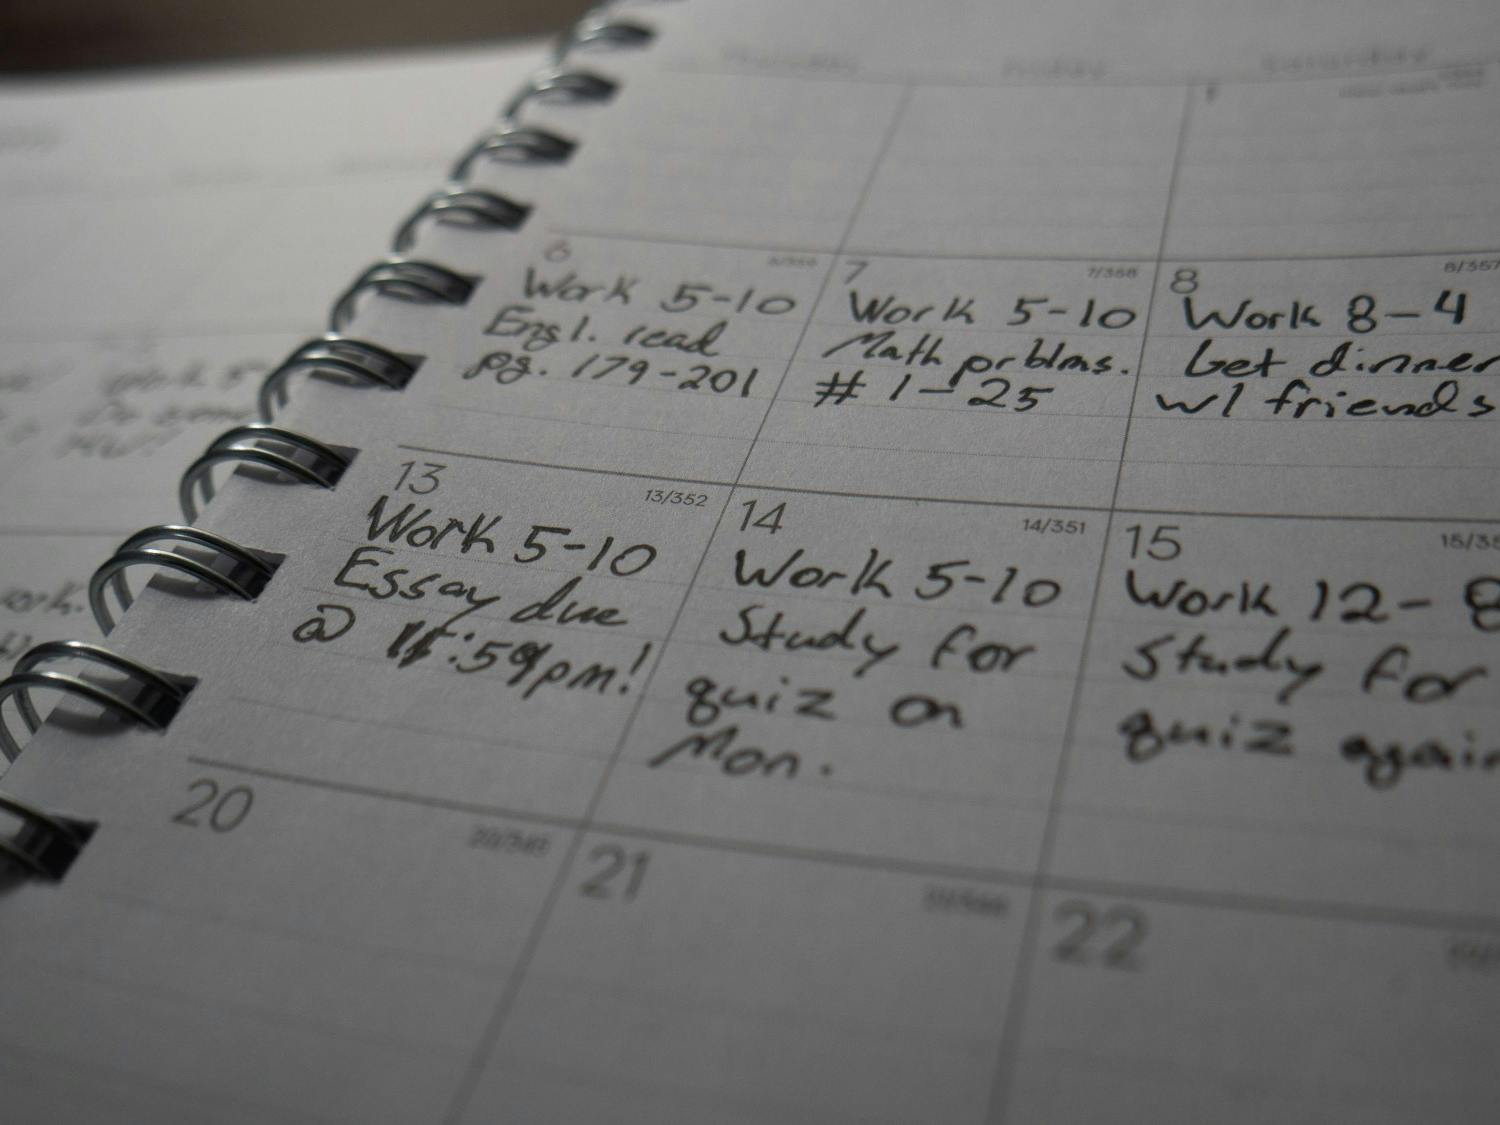 Thursday
Friday
Saturday
1
6
7
7/358
8
8/357
Work 5-10
Engl. read
pg. 179-201
Work 5-10
Math prblms.
# 1-25
Work 8-4
Get dinner
w/ friends
13
13/352
Work 5-10
Essay due
@ 11:59pm!
14
14/351
Work 5-10
Study for
quiz on
Mon.
15
Work 12-8
Study for
quiz again
20
20/345
21
22